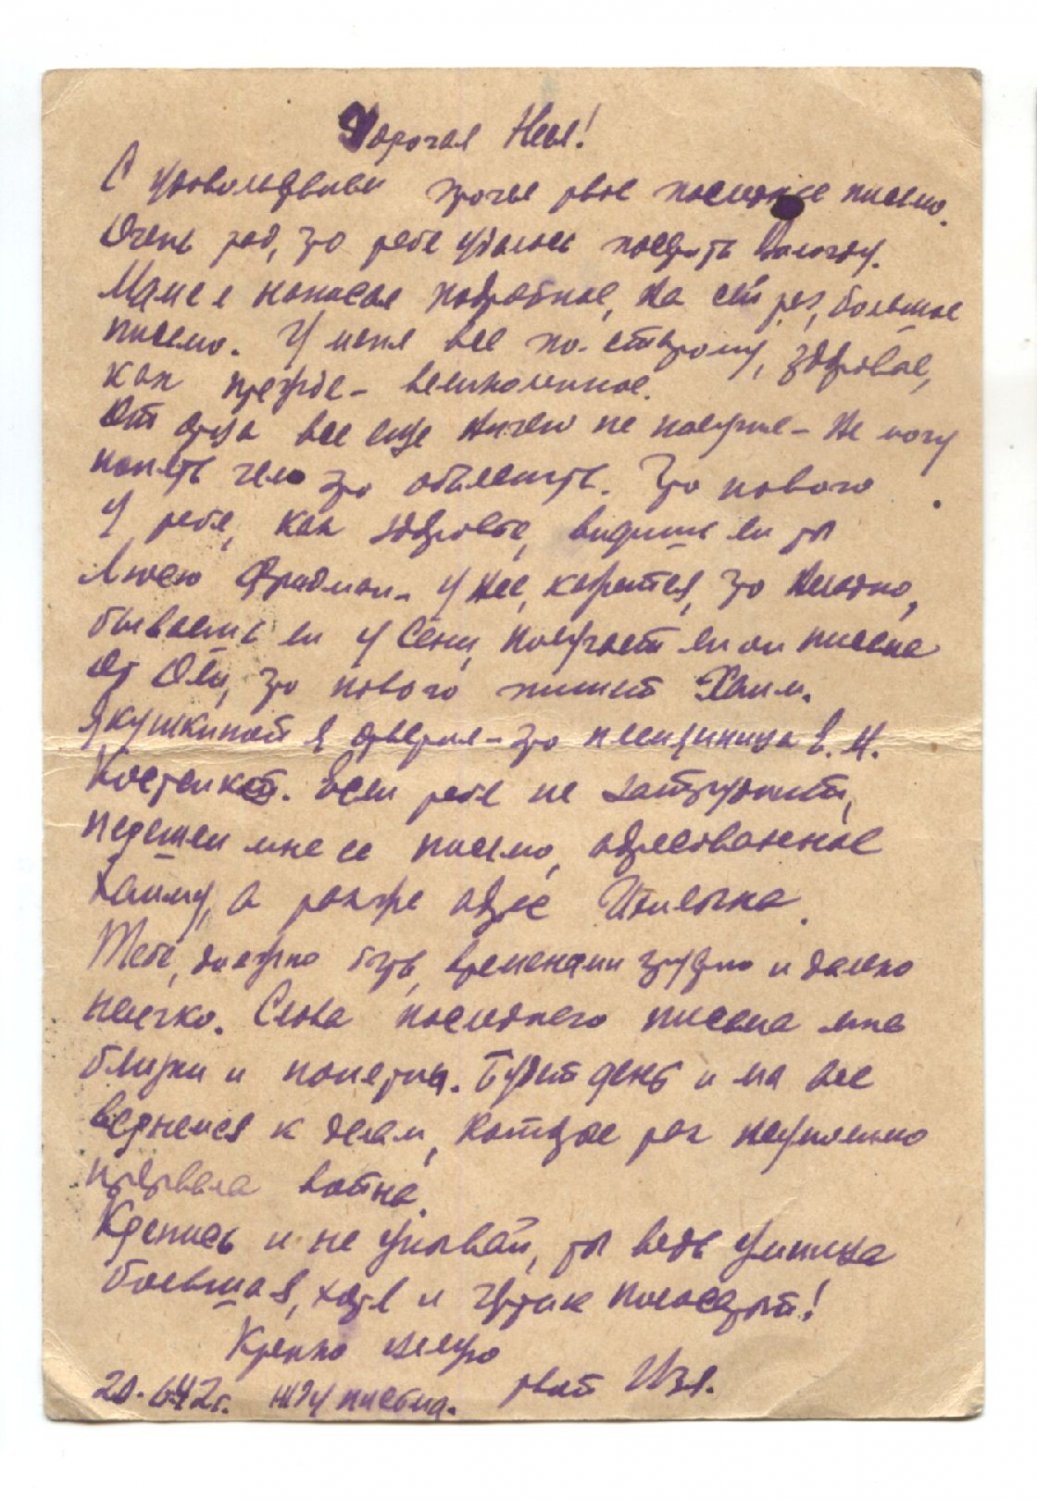 Дорогая Неля!
С удовольствием прочел твое последнее письмо.
Очень рад, что тебе удалось посетить Вологду.
Маме я написал подробное, на сей раз, большое
письмо. У меня все по-старому, здоровье,
как прежде - великолепное.
От отца все еще ничего не получил - не могу
понять чем это объяснить. Что нового
у тебя, как здоровье, видишь ли ты
Люсю Фридман. У нее, кажется, что неладно,
бываешь ли у Сени, получает ли он письма
от Оли, что нового пишет Хаим.
Якушкиной я ответил - это племянница В. И.
Костенко. Если тебя не затруднит,
перешли мне ее письмо, адресованное
Хаиму, а также адрес
Тебе, должно быть, временами трудно и далеко
нелегко. Слова последнего письма мне
близки и понятны. Будет день и мы все
вернемся к делам, которые так неумолимо
прервала война.
Крепись и не унывай, ты ведь умница
большая, хотя и чертик полосатый!
Крепко целую
твой Изя.
20.6.42г. Жду письма.